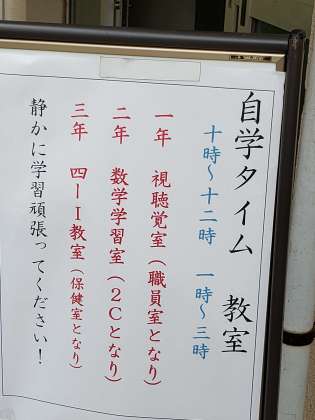 自学タイム　教室
十時～十二時　一時～三時
一年　視聴覚室（職員室となり）
二年　数学学習室（２Ｃとなり）
三年　四ーＩ教室（保健室となり）
静かに学習頑張ってください！